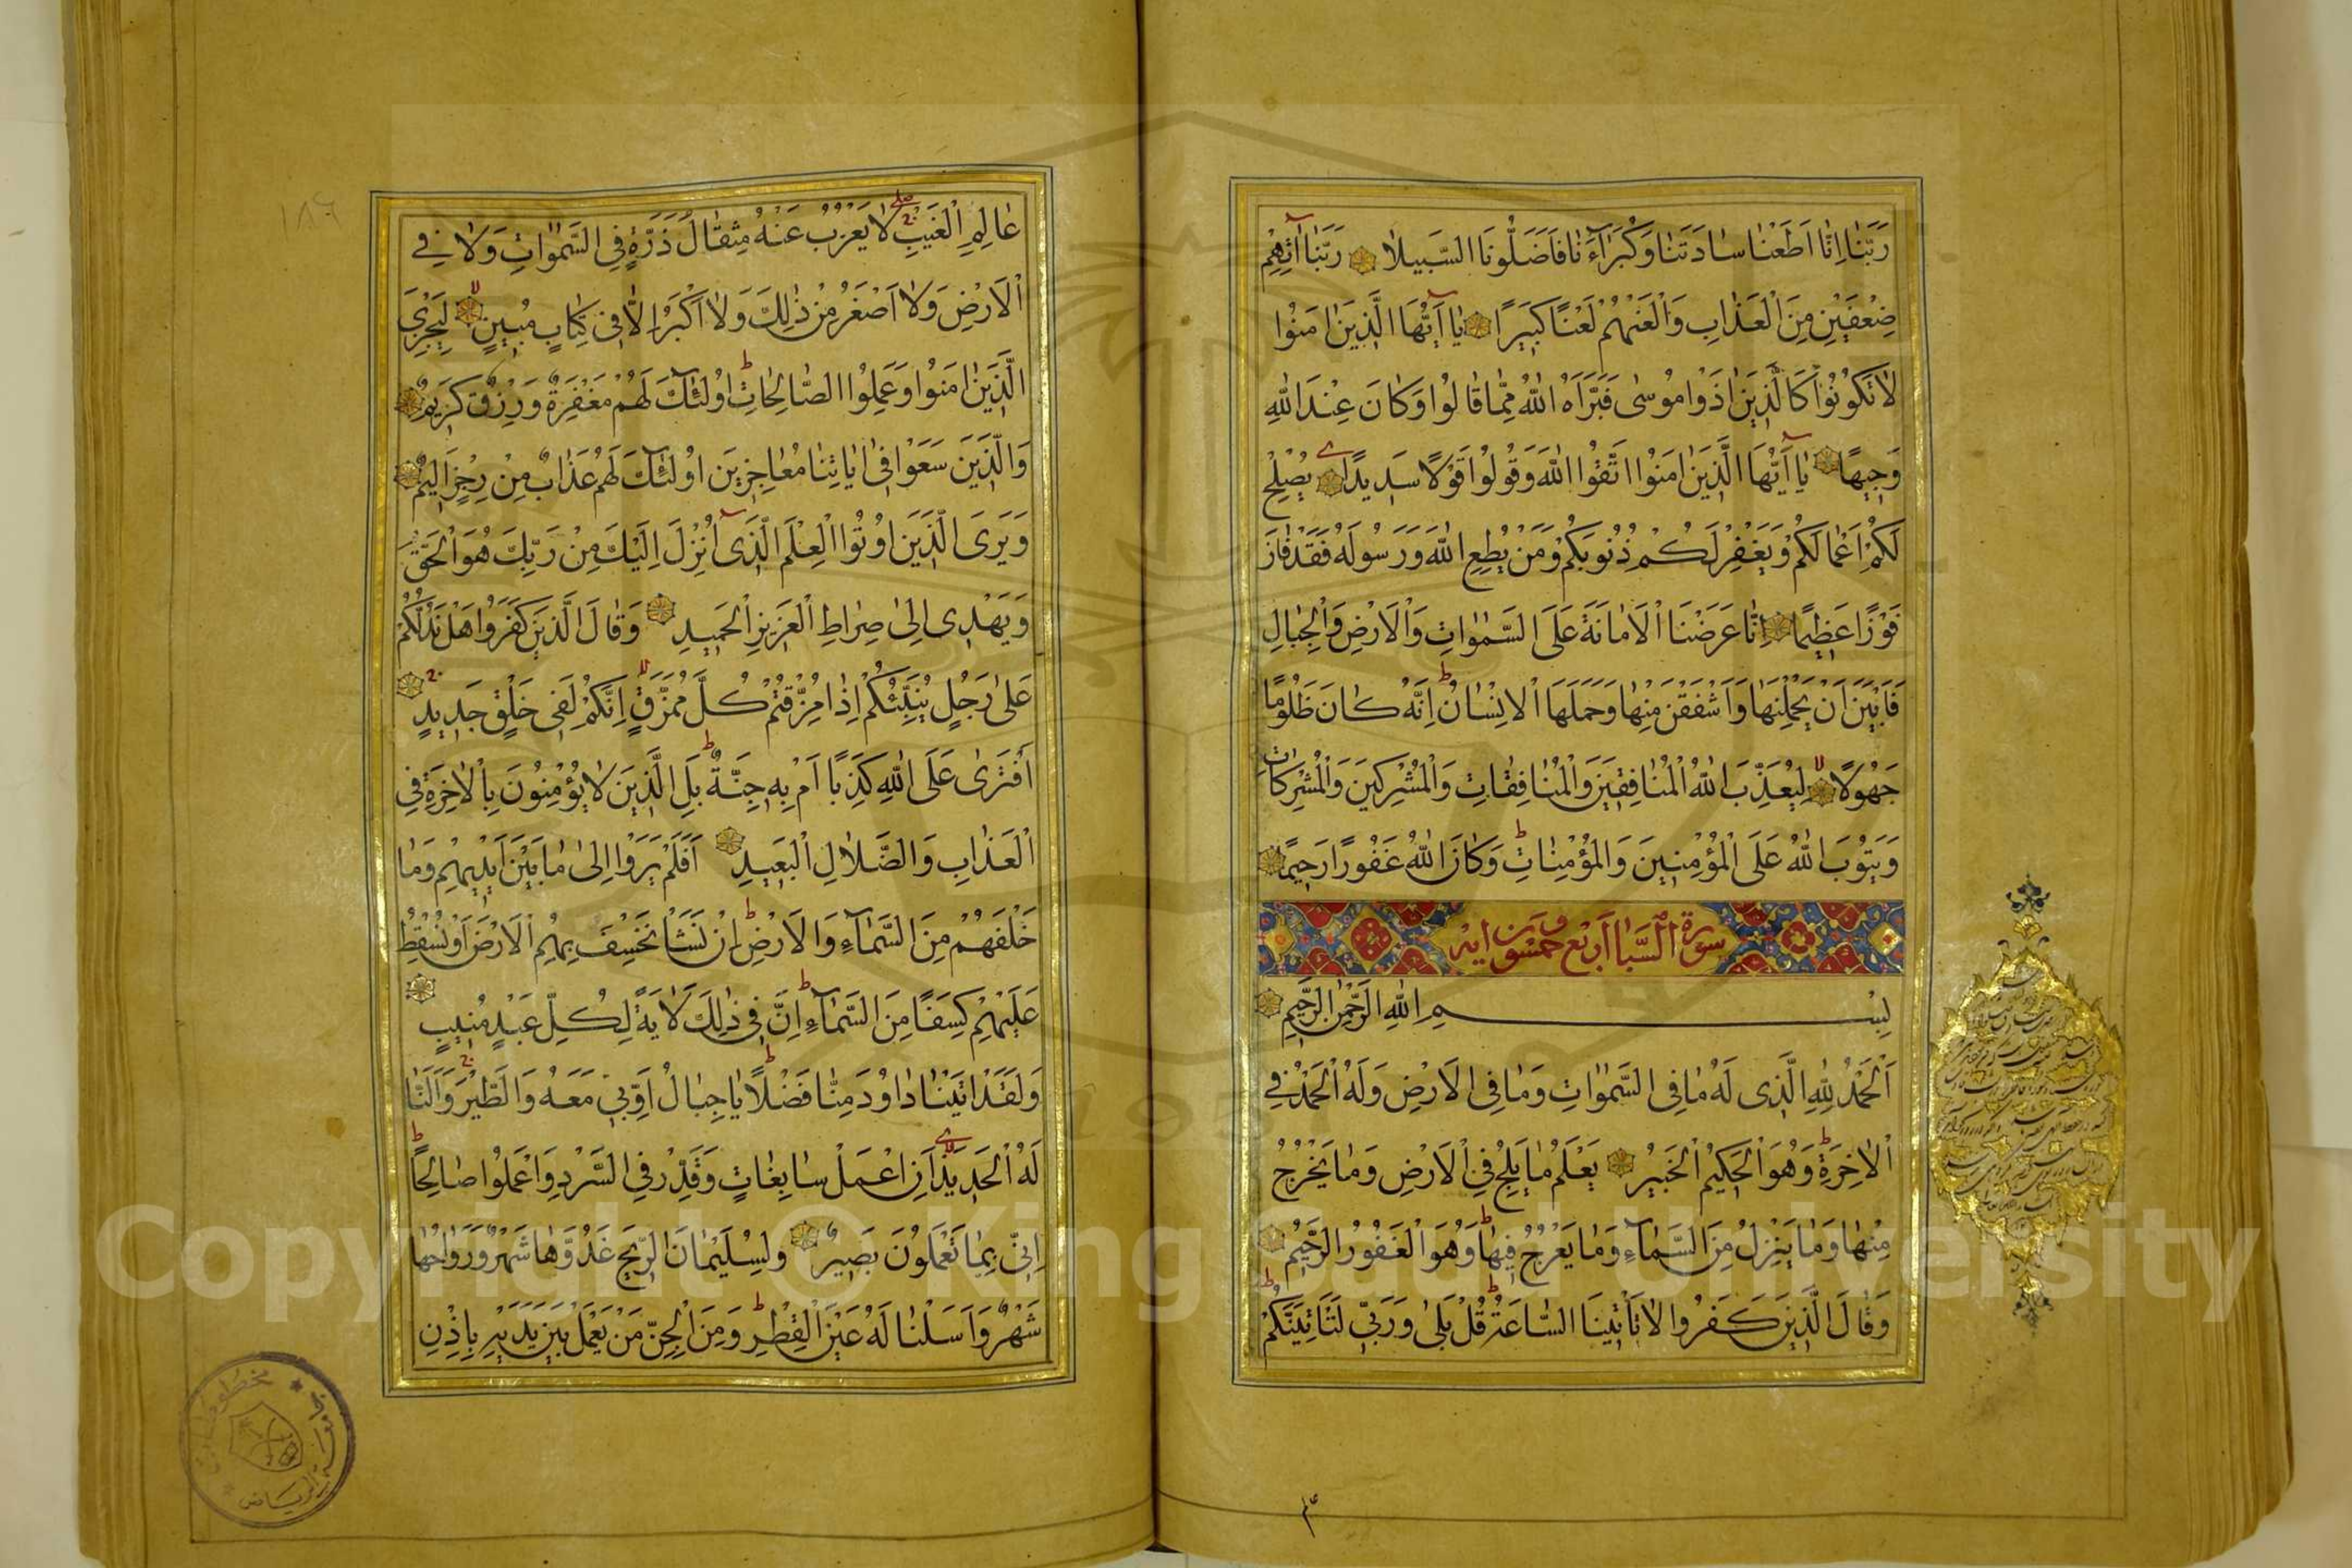 رَبَّنَا اِنَّا اَطَعْنَا سَادَتَنَا وَكُبَرَآءَنَا فَاَضَلُّونَا السَّبِيلَا رَبَّنَا آتِهِمْ
ضِعْفَيْنِ مِنَ الْعَذَابِ وَالْعَنْهُمْ لَعْنًا كَبِيرًا يَا اَيُّهَا الَّذِينَ اٰمَنُوا
لَا تَكُونُوا كَالَّذِينَ اٰذَوْا مُوسٰى فَبَرَّاَهُ اللّٰهُ مِمَّا قَالُوا وَكَانَ عِنْدَ اللّٰهِ
وَجِيهًا يَا اَيُّهَا الَّذِينَ اٰمَنُوا اتَّقُوا اللّٰهَ وَقُولُوا قَوْلًا سَدِيدًا يُصْلِحْ
لَكُمْ اَعْمَالَكُمْ وَيَغْفِرْ لَكُمْ ذُنُوبَكُمْ وَمَنْ يُطِعِ اللّٰهَ وَرَسُولَهُ فَقَدْ فَازَ
فَوْزًا عَظِيمًا اِنَّا عَرَضْنَا الْاَمَانَةَ عَلَى السَّمٰوَاتِ وَالْاَرْضِ وَالْجِبَالِ
فَاَبَيْنَ اَنْ يَحْمِلْنَهَا وَاَشْفَقْنَ مِنْهَا وَحَمَلَهَا الْاِنْسَانُ اِنَّهُ كَانَ ظَلُومًا
جَهُولًا لِيُعَذِّبَ اللّٰهُ الْمُنَافِقِينَ وَالْمُنَافِقَاتِ وَالْمُشْرِكِينَ وَالْمُشْرِكَاتِ
وَيَتُوبَ اللّٰهُ عَلَى الْمُؤْمِنِينَ وَالْمُؤْمِنَاتِ وَكَانَ اللّٰهُ غَفُورًا رَحِيمًا
سورة السبا اربع وخمسون اية
بِسْمِ اللّٰهِ الرَّحْمٰنِ الرَّحِيمِ
اَلْحَمْدُ لِلّٰهِ الَّذِى لَهُ مَا فِى السَّمٰوَاتِ وَمَا فِى الْاَرْضِ وَلَهُ الْحَمْدُ فِي
الْاٰخِرَةِ وَهُوَ الْحَكِيمُ الْخَبِيرُ يَعْلَمُ مَا يَلِجُ فِى الْاَرْضِ وَمَا يَخْرُجُ
مِنْهَا وَمَا يَنْزِلُ مِنَ السَّمَآءِ وَمَا يَعْرُجُ فِيهَا وَهُوَ الْغَفُورُ الرَّحِيمُ
وَقَالَ الَّذِينَ كَفَرُوا لَا تَاْتِينَا السَّاعَةُ قُلْ بَلٰى وَرَبِّى لَتَاْتِيَنَّكُمْ
١٨٦
عَالِمِ الْغَيْبِ لَا يَعْزُبُ عَنْهُ مِثْقَالُ ذَرَّةٍ فِى السَّمٰوَاتِ وَلَا فِي
الْاَرْضِ وَلَا اَصْغَرُ مِنْ ذٰلِكَ وَلَا اَكْبَرُ اِلَّا فِى كِتَابٍ مُبِينٍ لِيَجْزِيَ
الَّذِينَ اٰمَنُوا وَعَمِلُوا الصَّالِحَاتِ اُولٰئِكَ لَهُمْ مَغْفِرَةٌ وَرِزْقٌ كَرِيمٌ
وَالَّذِينَ سَعَوْا فِى اٰيَاتِنَا مُعَاجِزِينَ اُولٰئِكَ لَهُمْ عَذَابٌ مِنْ رِجْزٍ اَلِيمٌ
وَيَرَى الَّذِينَ اُوتُوا الْعِلْمَ الَّذِى اُنْزِلَ اِلَيْكَ مِنْ رَبِّكَ هُوَ الْحَقَّ
وَيَهْدِى اِلٰى صِرَاطِ الْعَزِيزِ الْحَمِيدِ وَقَالَ الَّذِينَ كَفَرُوا هَلْ نَدُلُّكُمْ
عَلٰى رَجُلٍ يُنَبِّئُكُمْ اِذَا مُزِّقْتُمْ كُلَّ مُمَزَّقٍ اِنَّكُمْ لَفِى خَلْقٍ جَدِيدٍ
اَفْتَرٰى عَلَى اللّٰهِ كَذِبًا اَمْ بِهِ جِنَّةٌ بَلِ الَّذِينَ لَا يُؤْمِنُونَ بِالْاٰخِرَةِ فِى
الْعَذَابِ وَالضَّلَالِ الْبَعِيدِ اَفَلَمْ يَرَوْا اِلٰى مَا بَيْنَ اَيْدِيهِمْ وَمَا
خَلْفَهُمْ مِنَ السَّمَآءِ وَالْاَرْضِ اِنْ نَشَاْ نَخْسِفْ بِهِمُ الْاَرْضَ اَوْ نُسْقِطْ
عَلَيْهِمْ كِسَفًا مِنَ السَّمَآءِ اِنَّ فِى ذٰلِكَ لَاٰيَةً لِكُلِّ عَبْدٍ مُنِيبٍ
وَلَقَدْ اٰتَيْنَا دَاوُدَ مِنَّا فَضْلًا يَا جِبَالُ اَوِّبِى مَعَهُ وَالطَّيْرَ وَاَلَنَّا
لَهُ الْحَدِيدَ اَنِ اعْمَلْ سَابِغَاتٍ وَقَدِّرْ فِى السَّرْدِ وَاعْمَلُوا صَالِحًا
اِنِّى بِمَا تَعْمَلُونَ بَصِيرٌ وَلِسُلَيْمَانَ الرِّيحَ غُدُوُّهَا شَهْرٌ وَرَوَاحُهَا
شَهْرٌ وَاَسَلْنَا لَهُ عَيْنَ الْقِطْرِ وَمِنَ الْجِنِّ مَنْ يَعْمَلُ بَيْنَ يَدَيْهِ بِاِذْنِ
Copyright © King Saud University
1957